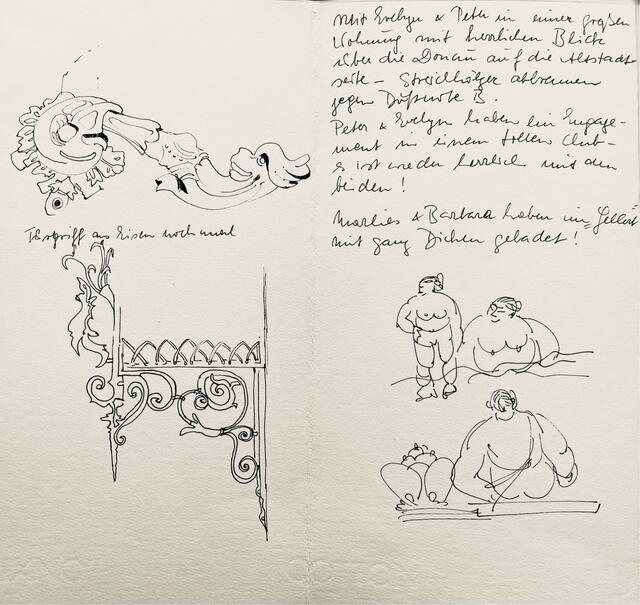 Mit Evelyn & Peter in einer großen
Wohnung mit herrlichen Blick
über die Donau auf die Altstadt-
seite – Streichhölzer abbrennen
gegen B.
Peter & Evelyn haben ein Engage-
ment in einem tollen Club –
es ist wieder herrlich mit den
beiden!
Marlies & Barbara haben im "Gellert"
mit ganz Dicken gebadet!
Türgriff aus Eisen nochmal